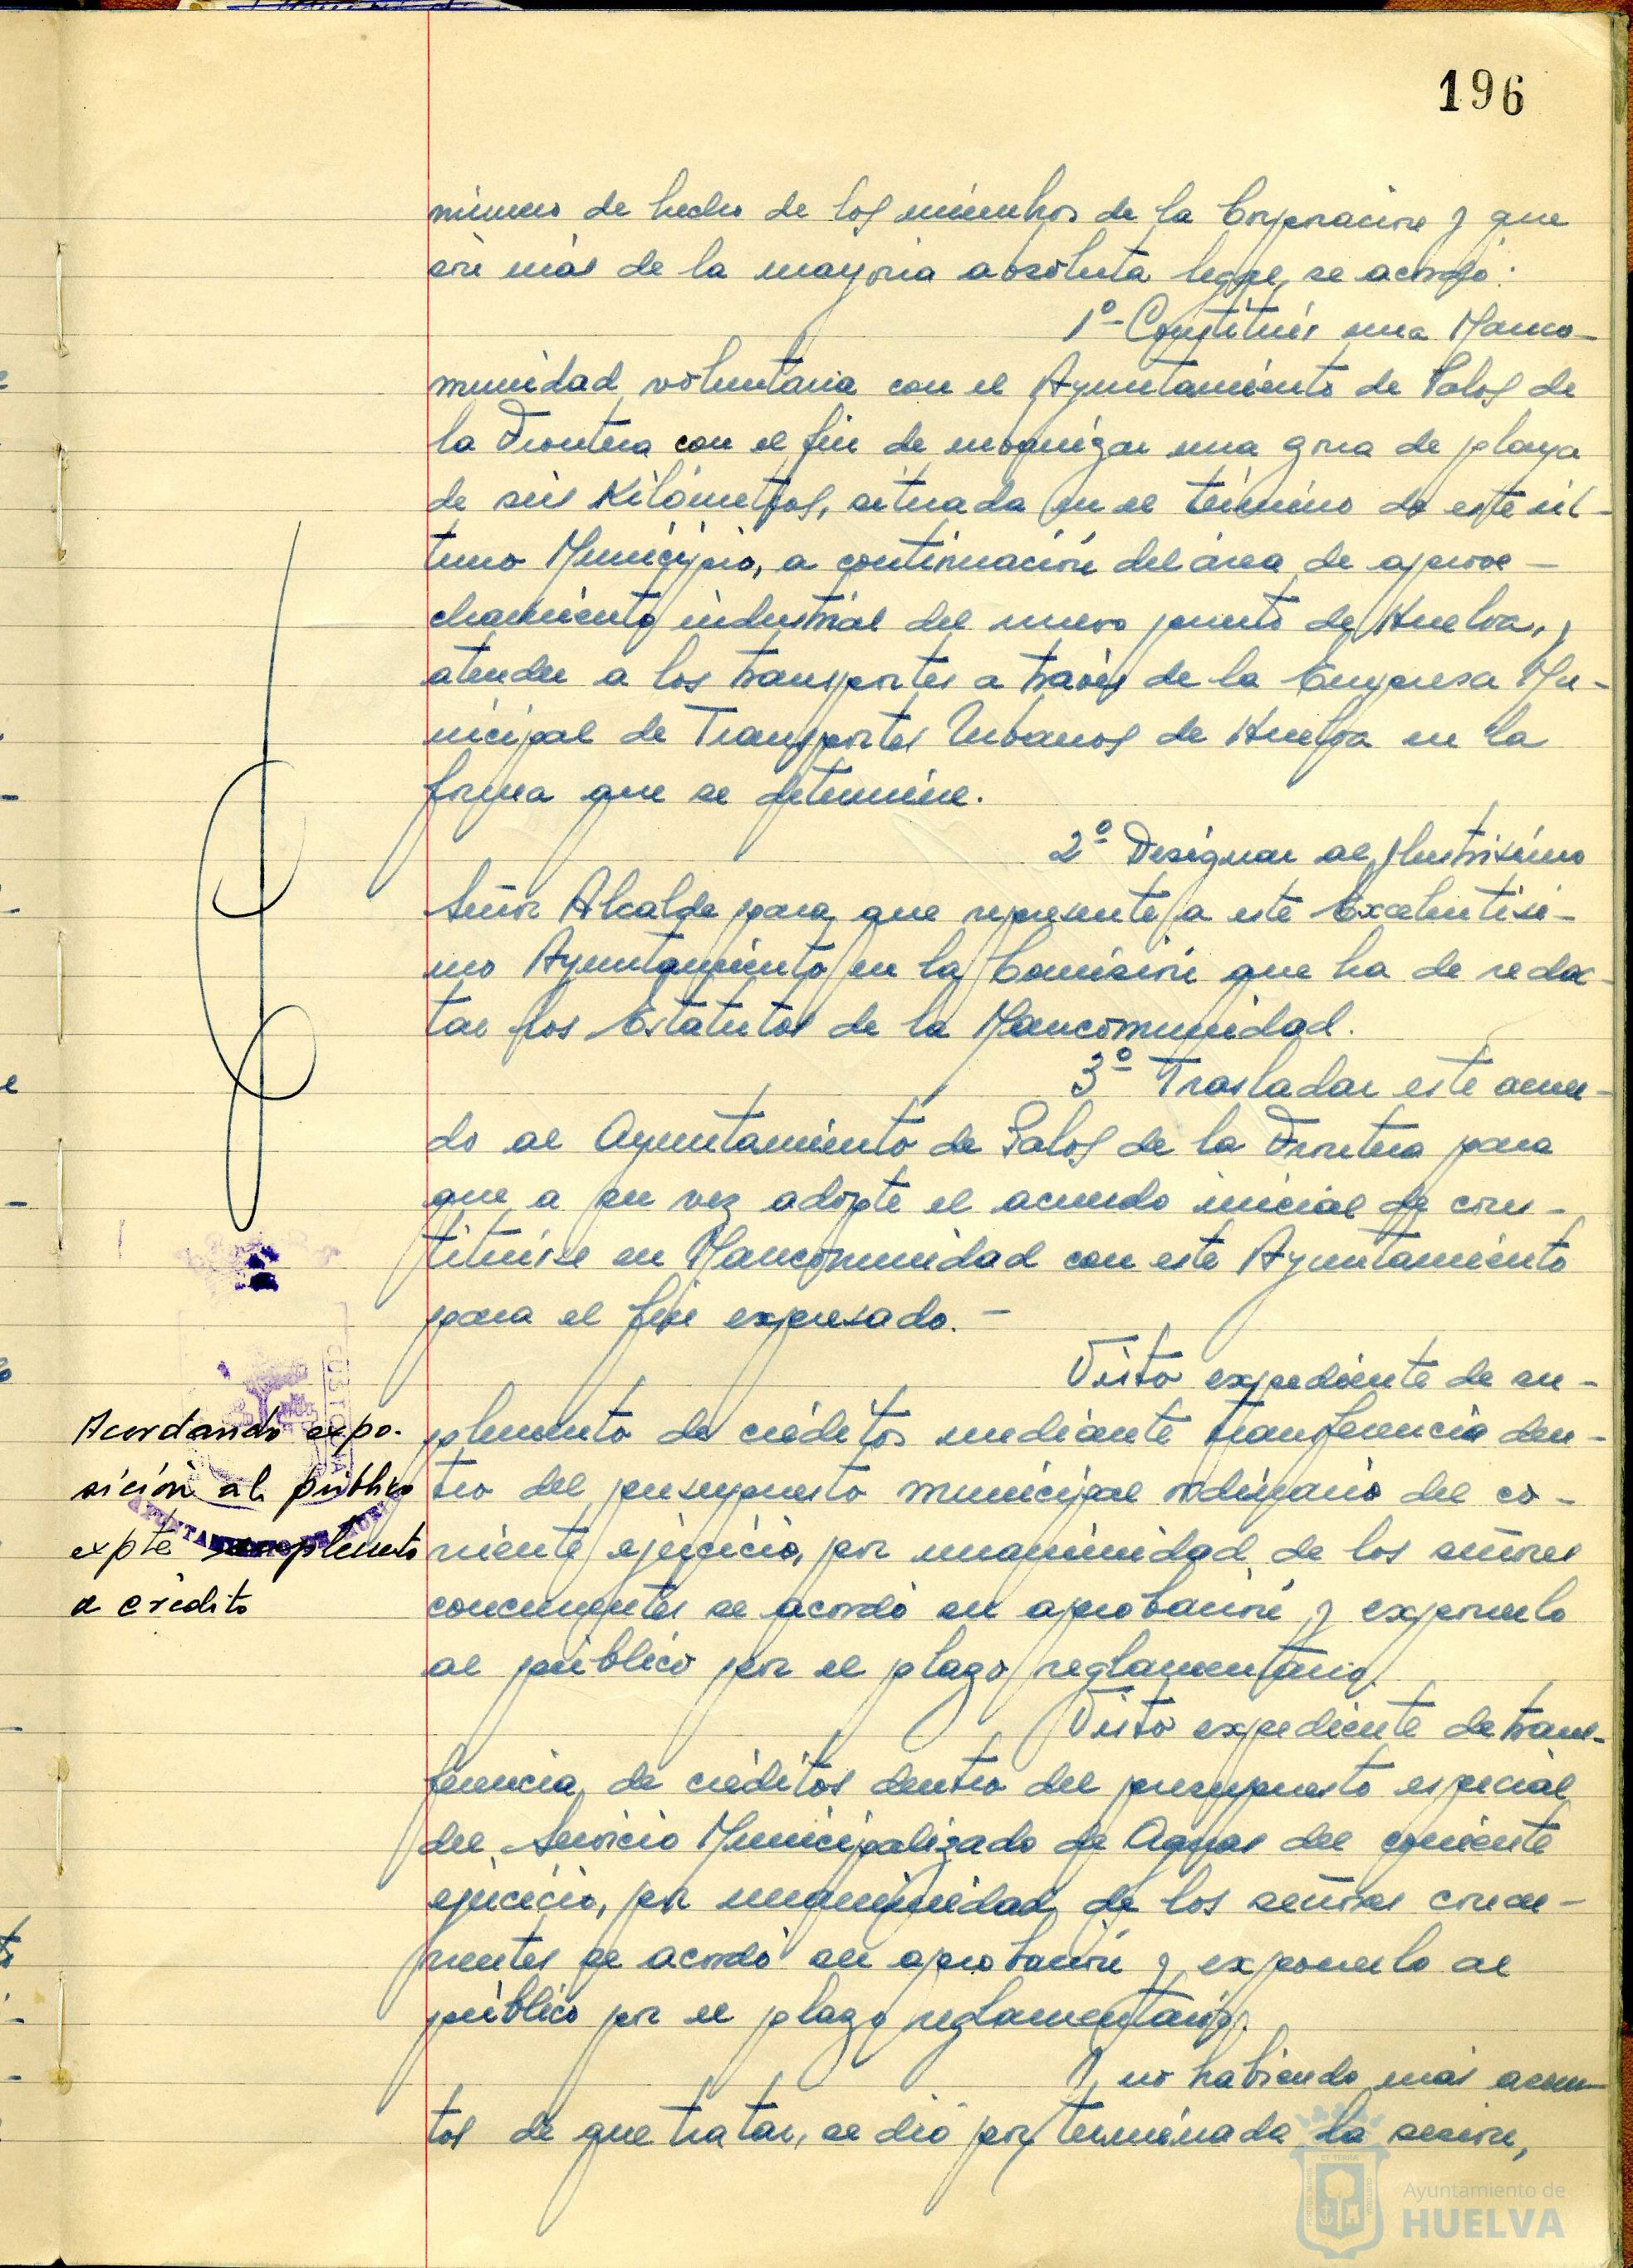 196
número de hecho de los miembros de la Corporación y que
son más de la mayoría absoluta legal, se acordó:
1º- Constituir una Manco-
munidad voluntaria con el Ayuntamiento de Palos de
la Frontera con el fin de urbanizar una zona de playa
de seis Kilómetros, situada en el término de este úl-
timo Municipio, a continuación del área de aprove-
chamiento industrial del nuevo puerto de Huelva, y
atender a los transportes a través de la Empresa Mu-
nicipal de Transportes Urbanos de Huelva en la
forma que se determine.
2º Designar al Ilustrísimo
Señor Alcalde para que represente a este Excelentísi-
mo Ayuntamiento en la Comisión que ha de redac-
tar los Estatutos de la Mancomunidad.
3º Trasladar este acuer-
do al Ayuntamiento de Palos de la Frontera para
que a su vez adopte el acuerdo inicial de cons-
tituirse en Mancomunidad con este Ayuntamiento
para el fin expresado.-
Visto expediente de su-
plemento de créditos mediante transferencia den-
tro del presupuesto municipal ordinario del co-
rriente ejercicio, por unanimidad de los señores
concurrentes se acordó su aprobación y exponerlo
al público por el plazo reglamentario.
Acordando expo-
sición al público
expte suplemento
a crédito
Visto expediente de trans-
ferencia de créditos dentro del presupuesto especial
del Servicio Municipalizado de Aguas del corriente
ejercicio, por unanimidad de los señores concu-
rrentes se acordó su aprobación y exponerlo al
público por el plazo reglamentario.
Y no habiendo más asun-
tos de que tratar, se dió por terminada la sesión,
AYUNTAMIENTO DE
Ayuntamiento de
HUELVA